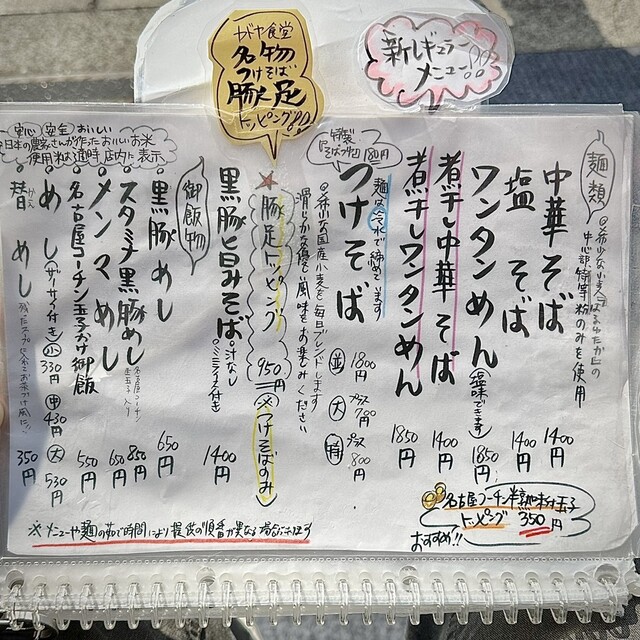 カドヤ食堂
名物
つけそば
豚足
トッピング
新レギュラー
メニュー!!
麺類
中心部特等粉のみを使用
中華そば
1400円
塩そば
1400円
ワンタンめん
(塩味できます)
1850円
煮干し中華そば
1400円
煮干しワンタンめん
1850円
特製
つけそば
麺は冷水で締めています
並 1800円
大 プラス700円
特 プラス800円
希少な国産小麦を毎日ブレンドします
滑らかな優しい風味をお楽しみください
豚足トッピング
950円
(※つけそばのみ)
黒豚旨みそば
汁なし
(ミニライス付き)
1400円
御飯物
黒豚めし
650円
スタミナ黒豚めし
名古屋コーチン
生玉子入り
850円
メンマめし
650円
名古屋コーチン玉子かけ御飯
550円
めし(ザーサイ付き)
小 330円
中 430円
大 530円
替めし
350円
安心 安全 おいしい
日本の農家さんが作ったおいしいお米
使用米は適時 店内に表示
名古屋コーチン半熟味付玉子
トッピング 350円
おすすめ!!
※メニューや麺の茹で時間により提供の順番が異なる場合があります